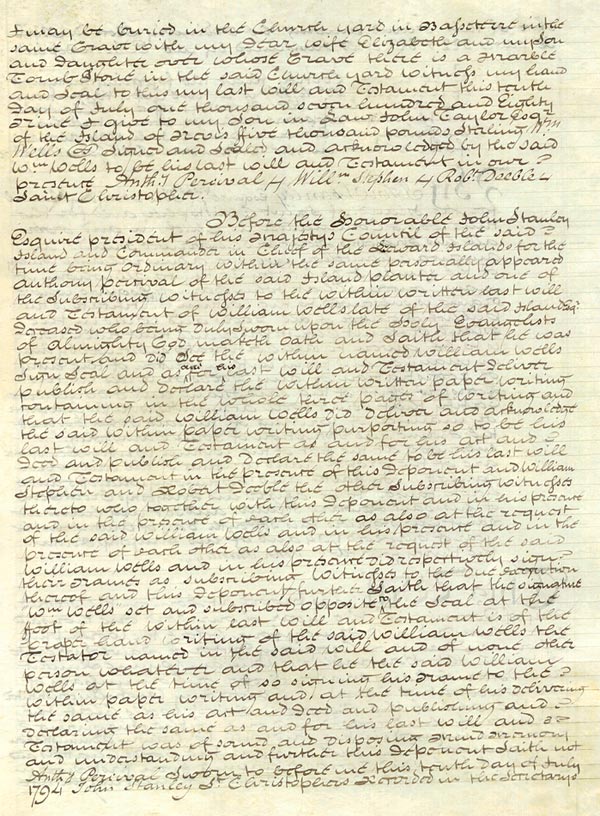 I may be buried in the Church yard in Basseterre in the
same Grave with my dear wife Elizabeth and my Son
and daughter over whose Grave there is a Marble
Tomb Stone in the said Church yard Witness my hand
and Seal to this my last will and Testament this tenth
day of July one thousand seven hundred and Eighty
I give to my Son in Law John Taylor Esqr
of the Island of Nevis five thousand pounds Sterling Wm
Wells Signed and Sealed and acknowledged by the said
Wm Wells to be his last will and Testament in our
presence Anthy Percival 4 Willm Stephen 4 Robt Deeble 4
Saint Christopher.
Before the Honorable John Stanley
Esquire president of his Majestys Council of the said
Island and Commander in Chief of the Leeward Islands for the
time being Ordinary within the same personally appeared
anthony percival of the said Island planter and one of
the Subscribing witnesses to the within written last will
and Testament of William Wells late of the said Island Esqr
deceased who being Duly Sworn upon the Holy Evangelists
of Almighty God, maketh oath and Saith that he was
present and did See the within named William Wells
Sign Seal and as and for his last will and Testament deliver
publish and declare the within written paper writing
containing in the whole three pages of writing and
that the said William Wells Did Deliver and acknowledge
the said within paper writing purporting so to be his
last will and Testament as and for his act and
Deed and publish and Declare the same to be his last will
and Testament in the presence of this Deponent and William
Stephen and Robert Deeble the other Subscribing witnesses
thereto who together with this Deponent and in his presence
and in the presence of each other as also at the request
of the said William Wells and in his presence and in the
presence of each other as also at the request of the said
William Wells and in his presence did respectively sign
their Names as subscribing Witnesses to the due execution
thereof and this Deponent further Saith that the signature
Wm Wells set and subscribed opposite to the Seal at the
foot of the within last will and Testament is of the
proper hand writing of the said William Wells the
Testator named in the said will and of none other
person whatever and that he the said William
Wells at the time of so signing his Name to the
within paper writing and at the time of his delivering
the same as his act and Deed and publishing and
declaring the same as and for his last will and
Testament was of sound and disposing mind memory
and understanding and further this Deponent Saith not
Anthy Percival Sworn to before me this tenth Day of July
1794 John Stanley St Christophers Recorded in the Secretarys